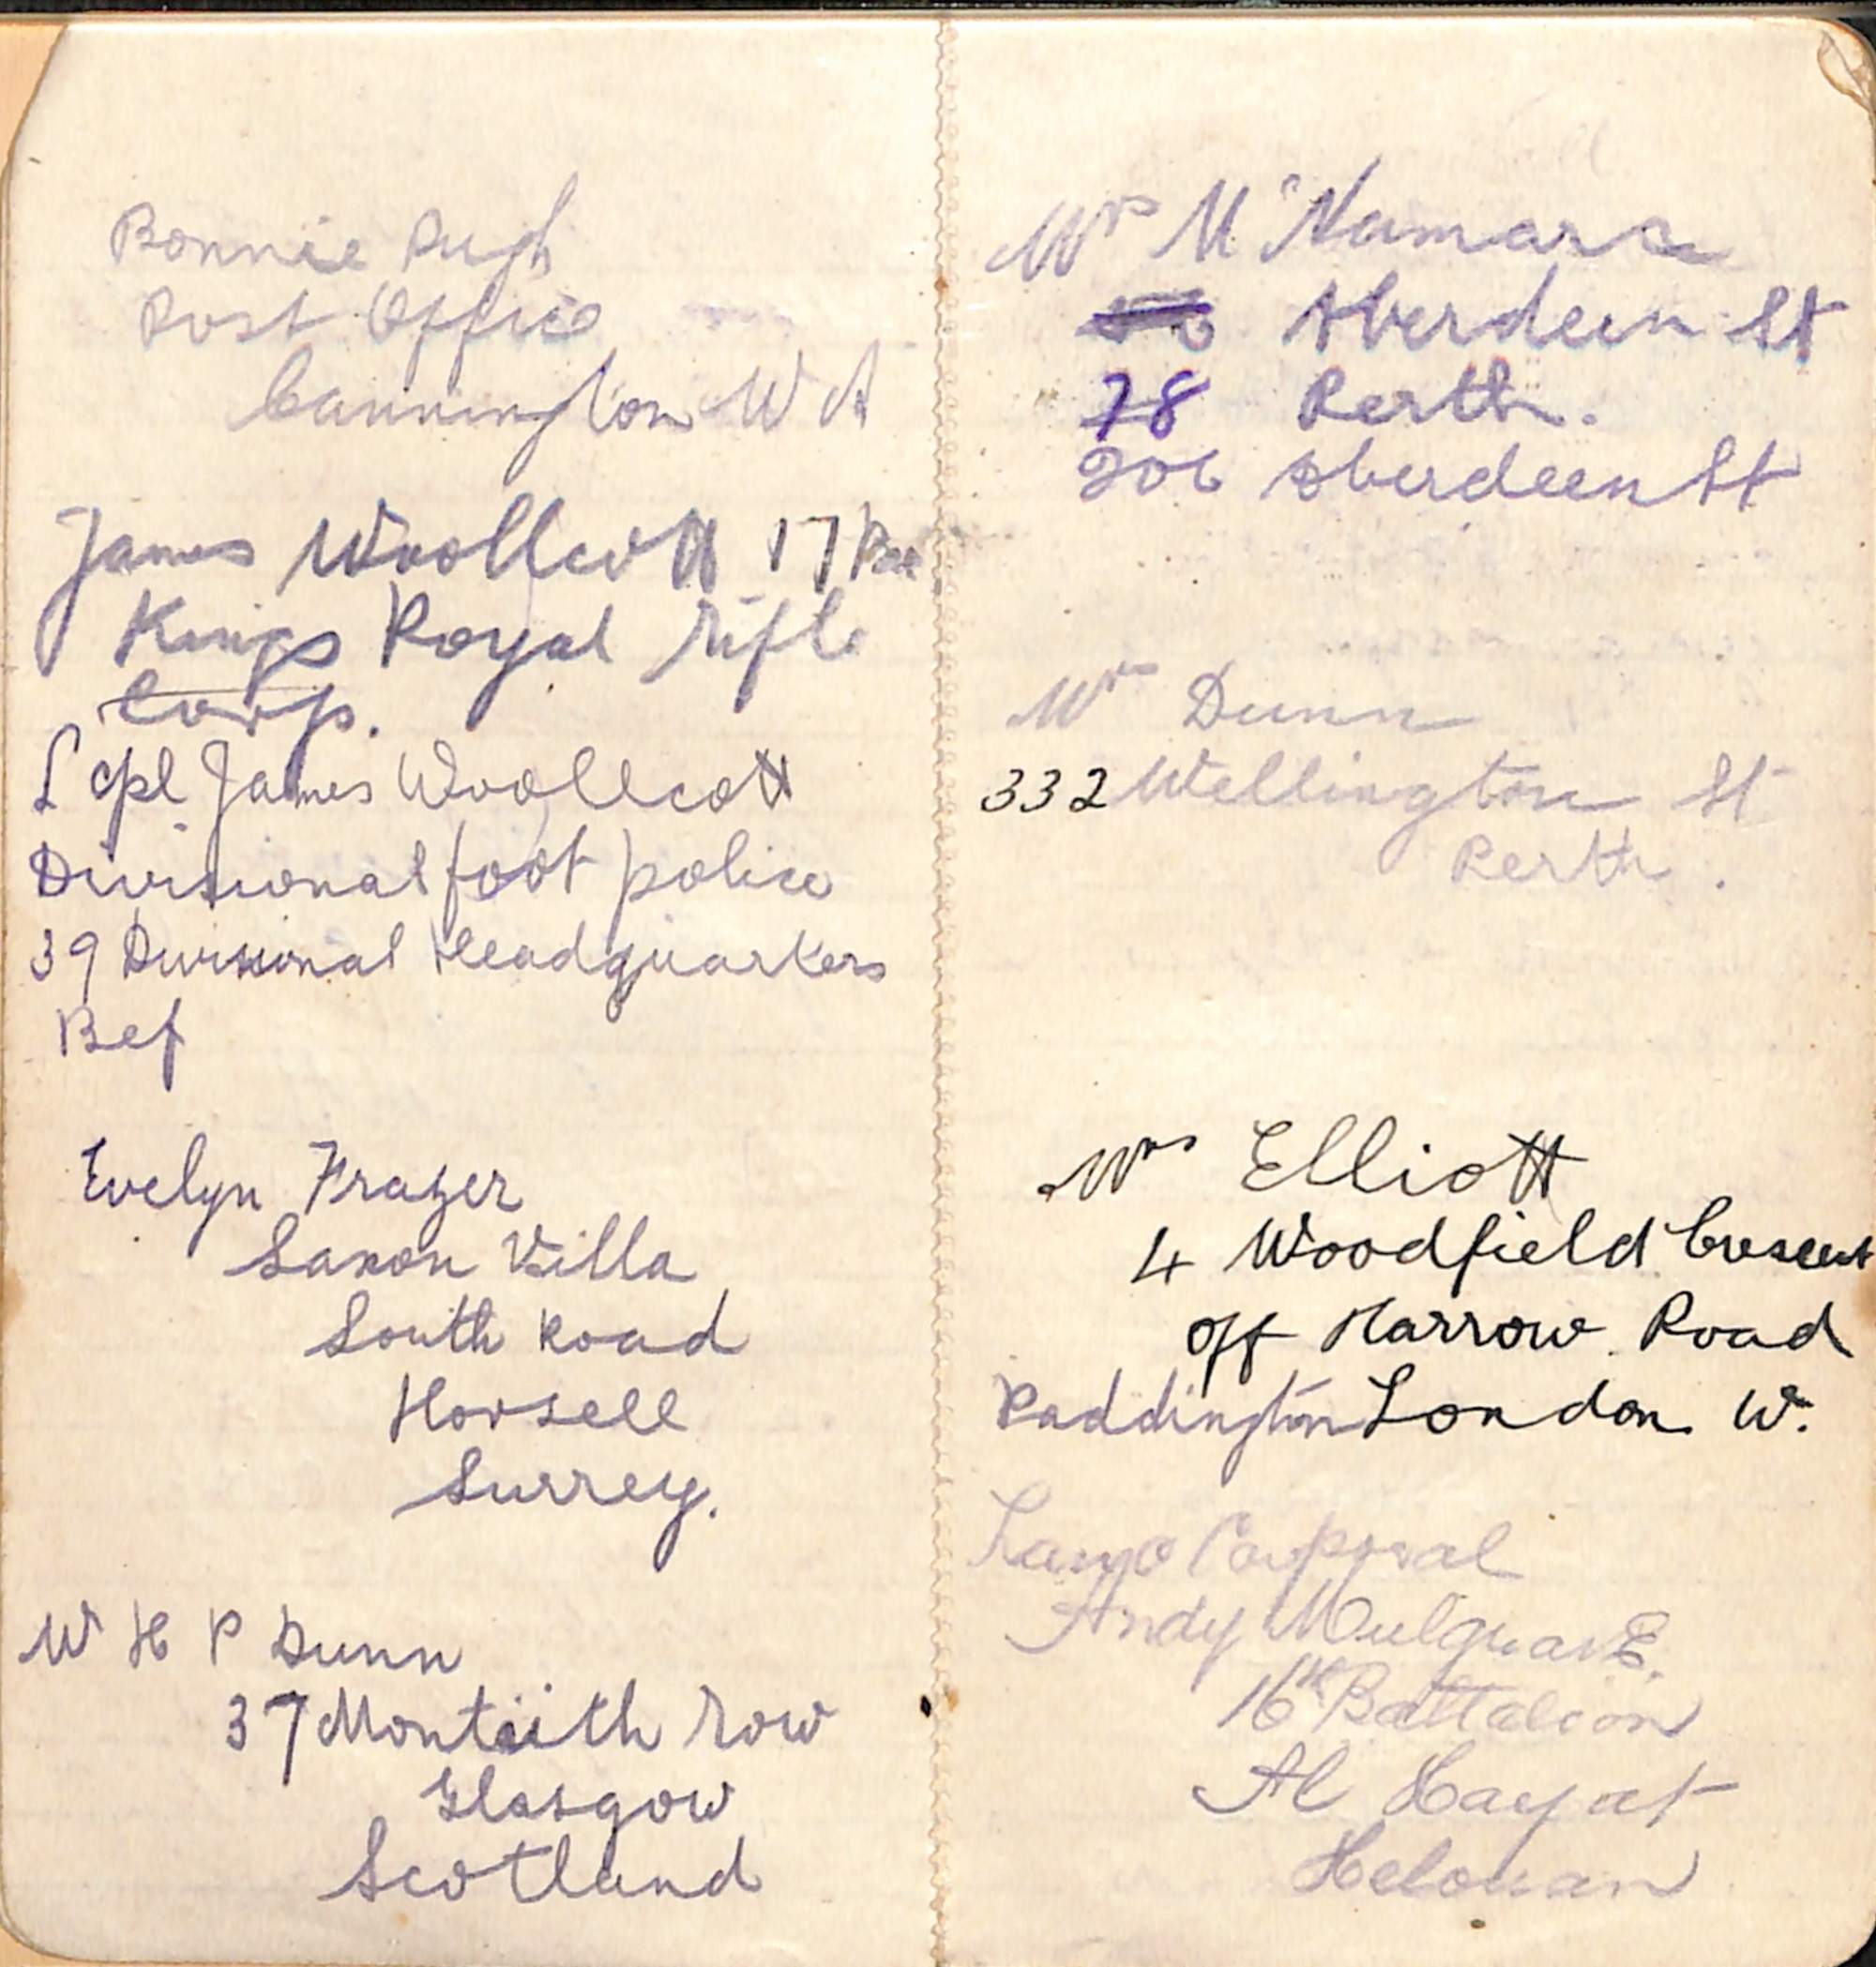 Bonnie Pugh
Post Office
Cannington W A
James Woollcott 17 Bat
Kings Royal rifle
Corp.
L cpl James Woollcott
Divisional foot police
39 Divisional Headquarters
Bef
Evelyn Frazer
Saxon Villa
South Road
Horsell
Surrey.
W H P Dunn
37 Monteith row
Glasgow
Scotland
Mrs McNamara
Aberdeen St
78 Perth.
206 Aberdeen St
Mrs Dunn
332 Wellington St
Perth.
Mrs Elliott
4 Woodfield Crescent
off Harrow Road
Paddington London W.
Corporal
Andy MulgravE.
16th Battalion
Al Hayat
Helouan